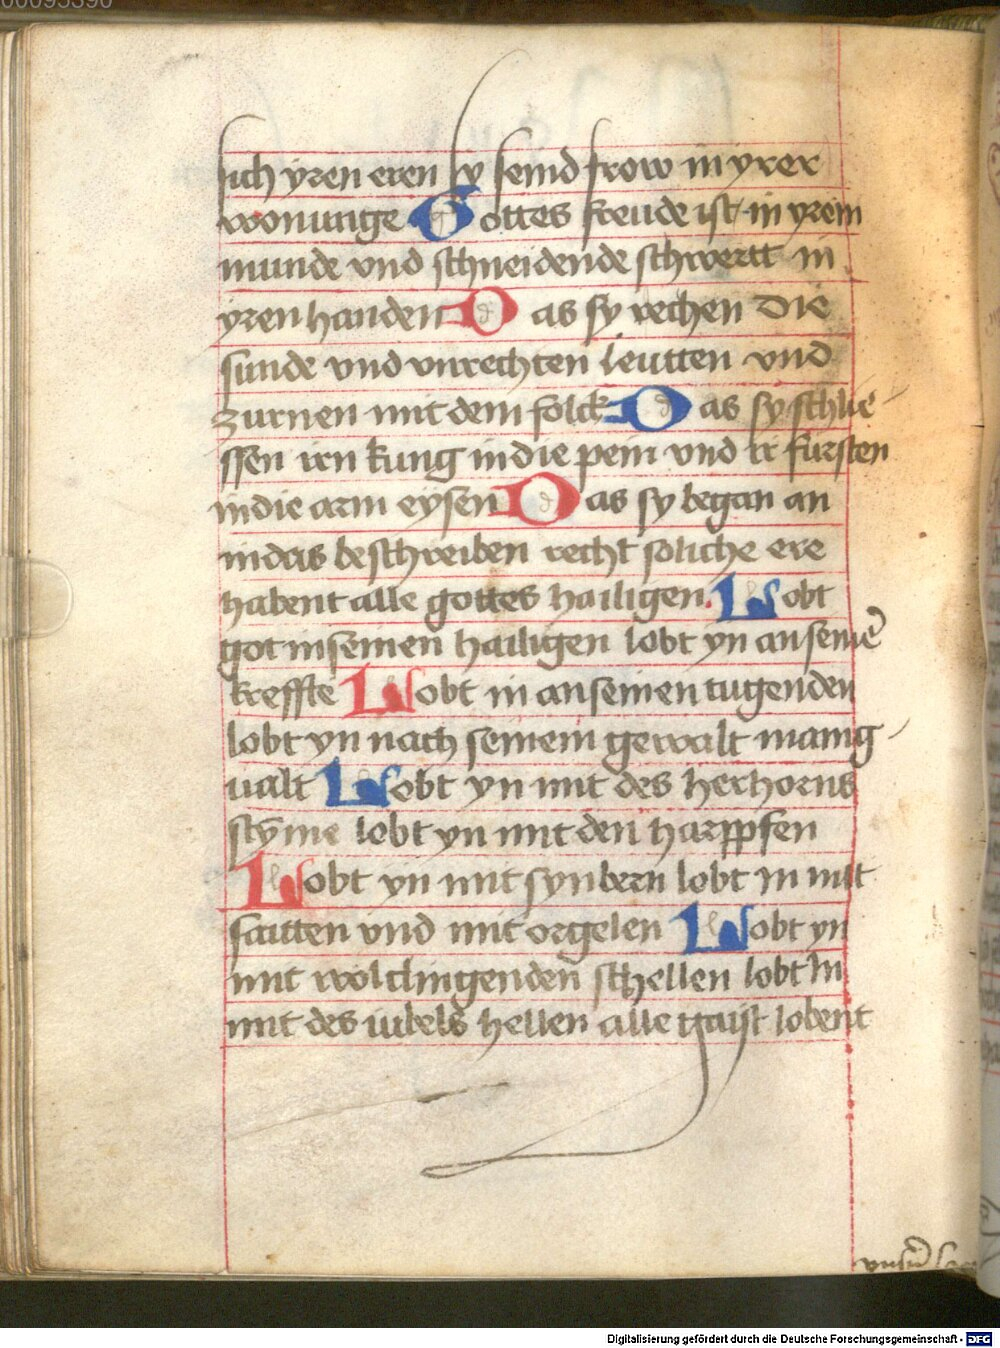 00095390
sich yren eren sy seind frow in yrer
wonunge Gottes freude ist in yrem
munde vnd schneidende schwertt in
yren handen Das sy rechen die
sunde vnd vnrechten leutten vnd
zurnen mit dem folck Das sy schlie
ssen irn kung in die pein vnd ir fursten
in die arm eysen Das sy began an
in das beschreiben recht soliche ere
habent alle gottes hailigen. Lobt
got in seinen hailigen lobt yn an seine͂
kreffte Lobt in an seinen tugenden
lobt yn nach seinem gewalt manig
ualt Lobt yn mit des herhorns
stÿme lobt yn mit den harppfen
Lobt yn mit synbern lobt in mit
saitten vnd mit orgelen Lobt yn
mit wolclingenden schellen lobt in
mit des iubels hellen alle gaist lobent
Digitalisierung gefördert durch die Deutsche Forschungsgemeinschaft - DFG